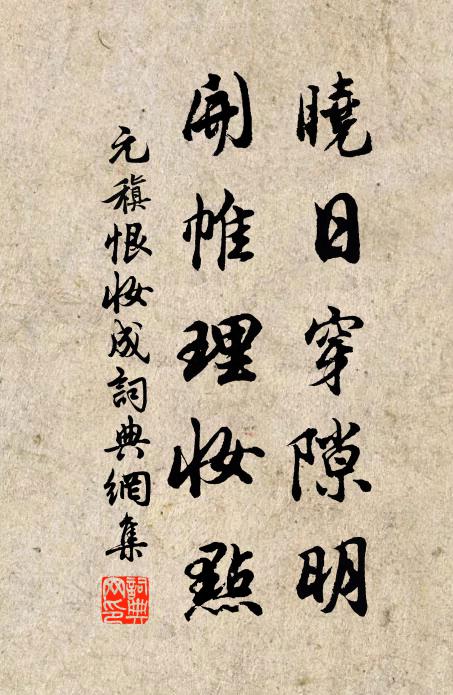 曉日穿隙明
開帷理妝點
元稹恨妝成詞典網集
詞典網印